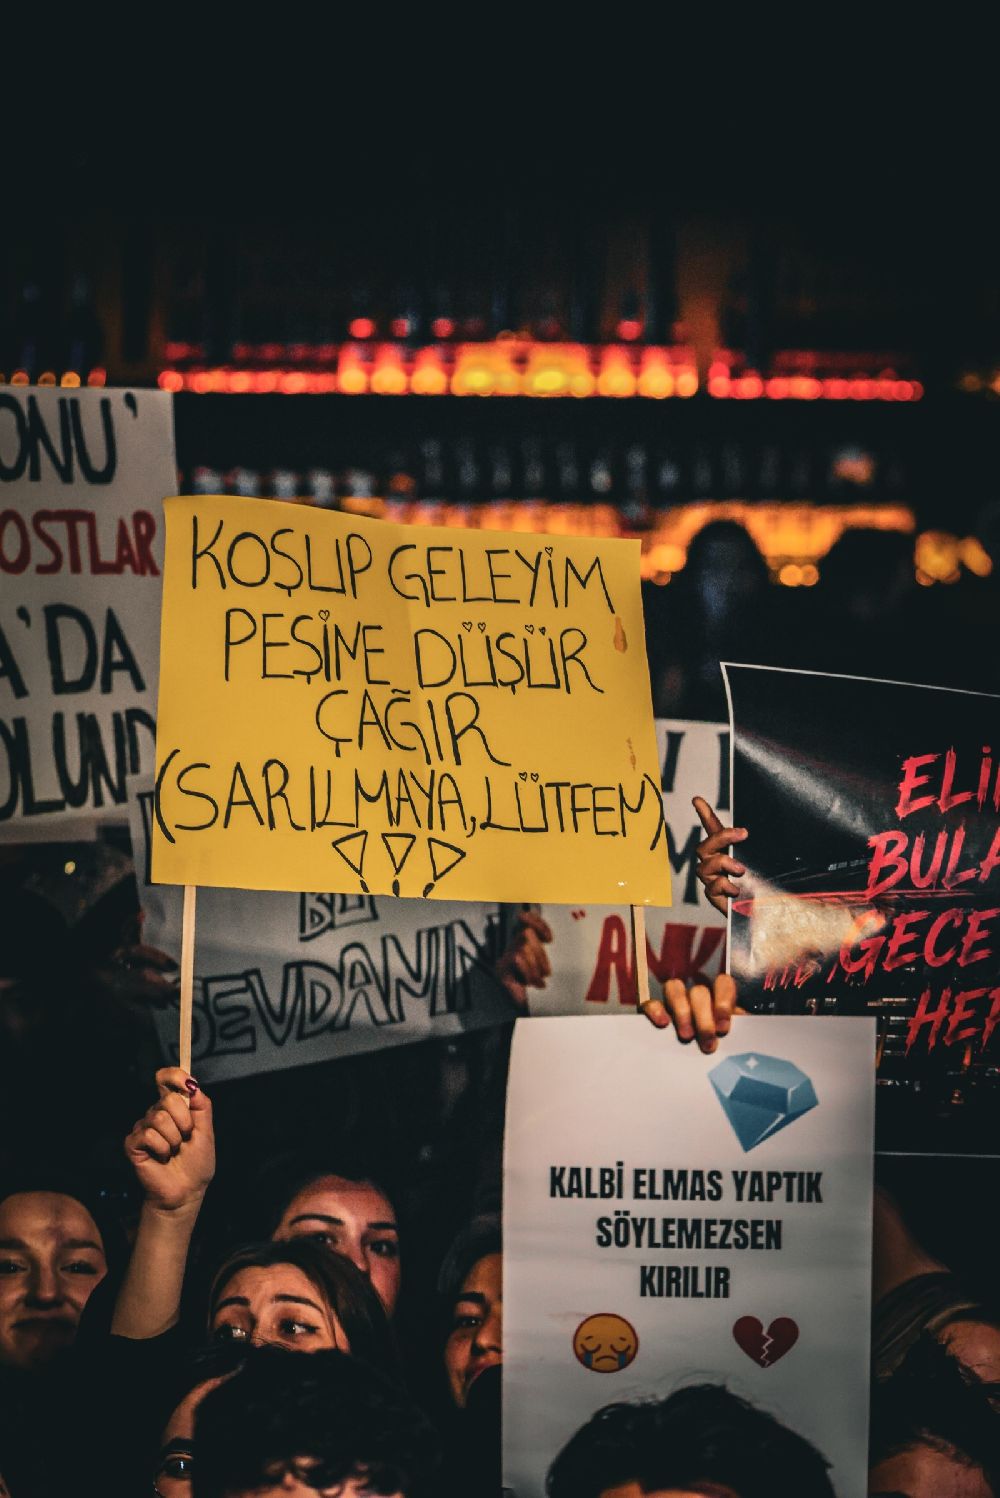 KOŞUP GELEYİM
PEŞİNE DÜŞÜR
ÇAĞIR
(SARILMAYA, LÜTFEN)
!!!
KALBİ ELMAS YAPTIK
SÖYLEMEZSEN
KIRILIR
ONU'
OSTLAR
A'DA
OLUND
BU
SEVDANIN
"ANK
ELİ
BULA
GECE
HEP